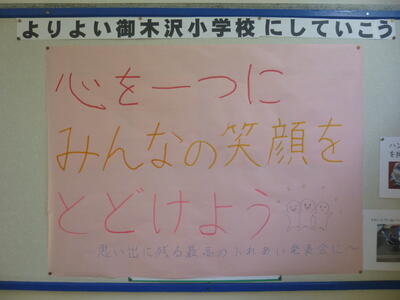 よりよい御木沢小学校にしていこう
心を一つに
みんなの笑顔を
とどけよう
～思い出に残る最高のふれあい発表会に～